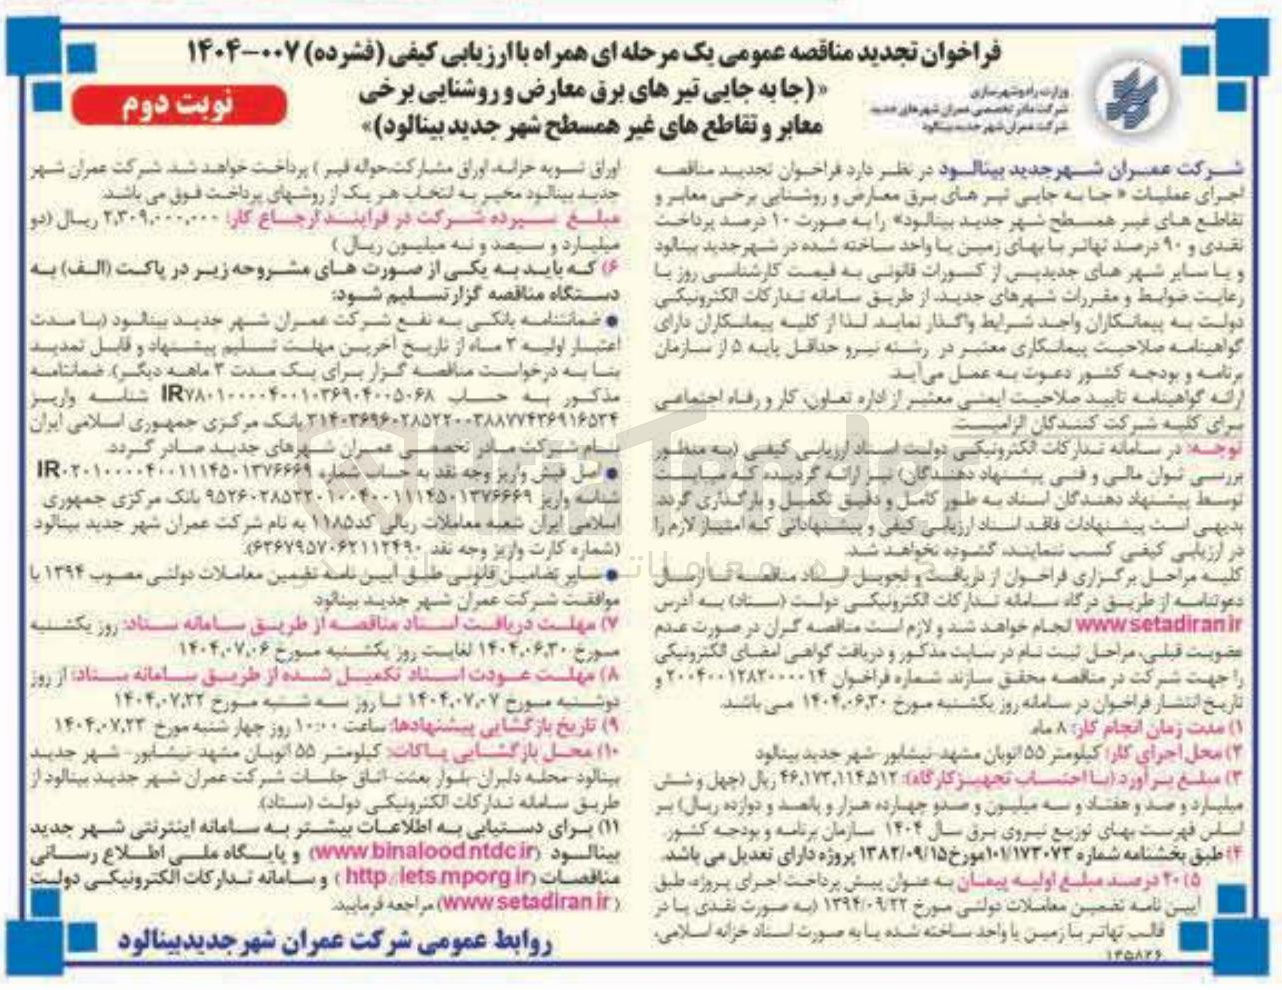 فراخوان تجدید مناقصه عمومی یک مرحله ای همراه با ارزیابی کیفی (فشرده) ۰۰۷-۱۴۰۴
«(جا به جایی تیر های برق معارض و روشنایی برخی
معابر و تقاطع های غیر همسطح شهر جدید بینالود)»
نوبت دوم
وزارت راه و شهرسازی
شرکت مادر تخصصی عمران شهرهای جدید
شرکت عمران شهر جدید بینالود
شرکت عمران شهر جدید بینالود در نظر دارد فراخوان تجدید مناقصه
اجرای عملیات « جا به جایی تیر های برق معارض و روشنایی برخی معابر و
تقاطع های غیر همسطح شهر جدید بینالود» را به صورت ۱۰ درصد پرداخت
نقدی و ۹۰ درصد تهاتر با بهای زمین یا واحد ساخته شده در شهر جدید بینالود
و یا سایر شهر های جدید پس از کسورات قانونی به قیمت کارشناسی روز با
رعایت ضوابط و مقررات شهرهای جدید، از طریق سامانه تدارکات الکترونیکی
دولت به پیمانکاران واجد شرایط واگذار نماید. لذا از کلیه پیمانکاران دارای
گواهینامه صلاحیت پیمانکاری معتبر در رشته نیرو حداقل پایه ۵ از سازمان
برنامه و بودجه کشور دعوت به عمل می آید.
ارائه گواهینامه تایید صلاحیت ایمنی معتبر از اداره تعاون، کار و رفاه اجتماعی
برای کلیه شرکت کنندگان الزامیست.
توجه: در سامانه تدارکات الکترونیکی دولت اسناد ارزیابی کیفی (به منظور
بررسی توان مالی و فنی پیشنهاد دهندگان) نیز ارائه گردیده که میبایست
توسط پیشنهاد دهندگان اسناد به طور کامل و دقیق تکمیل و بارگذاری گردد.
بدیهی است پیشنهادات فاقد اسناد ارزیابی کیفی و پیشنهاداتی که امتیاز لازم را
در ارزیابی کیفی کسب ننمایند، گشوده نخواهد شد.
کلیه مراحل برگزاری فراخوان از دریافت و تحویل اسناد مناقصه تا ارسال
دعوتنامه از طریق درگاه سامانه تدارکات الکترونیکی دولت (ستاد) به آدرس
www.setadiran.ir انجام خواهد شد و لازم است مناقصه گران در صورت عدم
عضویت قبلی، مراحل ثبت نام در سایت مذکور و دریافت گواهی امضای الکترونیکی
را جهت شرکت در مناقصه محقق سازند. شماره فراخوان ۲۰۰۴۰۰۱۲۸۲۰۰۰۰۱۴ و
تاریخ انتشار فراخوان در سامانه روز یکشنبه مورخ ۱۴۰۴.۰۶.۳۰ می باشد.
۱) مدت زمان انجام کار: ۸ ماه.
۲) محل اجرای کار: کیلومتر ۵۵ اتوبان مشهد-نیشابور -شهر جدید بینالود
۳) مبلغ برآورد (با احتساب تجهیز کارگاه): ۴۶,۱۷۳,۱۱۴,۵۱۲ ریال (چهل و شش
میلیارد و صد و هفتاد و سه میلیون و صدو چهارده هزار و پانصد و دوازده ریال) بر
اساس فهرست بهای توزیع نیروی برق سال ۱۴۰۴ سازمان برنامه و بودجه کشور.
۴) طبق بخشنامه شماره ۱۰۱/۱۷۳۰۷۳مورخ۱۳۸۲/۰۹/۱۵ پروژه دارای تعدیل می باشد.
۵) ۲۰ درصد مبلغ اولیه پیمان به عنوان پیش پرداخت اجرای پروژه، طبق
آیین نامه تضمین معاملات دولتی مورخ ۱۳۹۴/۰۹/۲۲ (به صورت نقدی یا در
قالب تهاتر با زمین یا واحد ساخته شده یا به صورت اسناد خزانه اسلامی،
۱۳۵۸۲۶
اوراق تسویه خزانه، اوراق مشارکت،حواله قیر ) پرداخت خواهد شد. شرکت عمران شهر
جدید بینالود مخیر به انتخاب هر یک از روشهای پرداخت فوق می باشد.
مبلغ سپرده شرکت در فرایند ارجاع کار: ۲,۳۰۹,۰۰۰,۰۰۰ ریال (دو
میلیارد و سیصد و نه میلیون ریال )
۶) که باید به یکی از صورت های مشروحه زیر در پاکت (الف) به
دستگاه مناقصه گزار تسلیم شود:
● ضمانتنامه بانکی به نفع شرکت عمران شهر جدید بینالود (با مدت
اعتبار اولیه ۳ ماه از تاریخ آخرین مهلت تسلیم پیشنهاد و قابل تمدید
بنا به درخواست مناقصه گزار برای یک مدت ۳ ماهه دیگر). ضمانتنامه
مذکور به حساب IR۷۸۰۱۰۰۰۰۴۰۰۱۰۳۶۹۰۴۰۰۵۰۶۸ شناسه واریز
۳۱۴۰۳۶۹۶۰۲۸۵۲۲۰۰۳۸۸۷۷۴۳۶۹۱۶۵۳۴ بانک مرکزی جمهوری اسلامی ایران
بنام شرکت مادر تخصصی عمران شهرهای جدید صادر گردد.
● اصل فیش واریز وجه نقد به حساب شماره IR۰۲۰۱۰۰۰۰۴۰۰۱۱۱۴۵۰۱۳۷۶۶۶۹
شناسه واریز ۹۵۲۶۰۲۸۵۲۲۰۱۰۰۴۰۰۱۱۱۴۵۰۱۳۷۶۶۶۹ بانک مرکزی جمهوری
اسلامی ایران شعبه معاملات ریالی کد۱۱۸۵ به نام شرکت عمران شهر جدید بینالود
(شماره کارت واریز وجه نقد ۶۳۶۷۹۵۷۰۶۲۱۱۲۴۹۰).
● سایر تضامین قانونی طبق آیین نامه تضمین معاملات دولتی مصوب ۱۳۹۴ با
موافقت شرکت عمران شهر جدید بینالود
۷) مهلت دریافت اسناد مناقصه از طریق سامانه ستاد: روز یکشنبه
مورخ ۱۴۰۴.۰۶.۳۰ لغایت روز یکشنبه مورخ ۱۴۰۴.۰۷.۰۶
۸) مهلت عودت اسناد تکمیل شده از طریق سامانه ستاد: از روز
دوشنبه مورخ ۱۴۰۴.۰۷.۰۷ تا روز سه شنبه مورخ ۱۴۰۴.۰۷.۲۲
۹) تاریخ بازگشایی پیشنهادها: ساعت ۱۰:۰۰ روز چهار شنبه مورخ ۱۴۰۴.۰۷.۲۳
۱۰) محل بازگشایی پاکات: کیلومتر ۵۵ اتوبان مشهد-نیشابور- شهر جدید
بینالود-محله دلیران-بلوار بعثت-اتاق جلسات شرکت عمران شهر جدید بینالود از
طریق سامانه تدارکات الکترونیکی دولت (ستاد).
۱۱) برای دستیابی به اطلاعات بیشتر به سامانه اینترنتی شهر جدید
بینالود (www.binalood.ntdc.ir) و پایگاه ملی اطلاع رسانی
مناقصات (http://iets.mporg.ir ) و سامانه تدارکات الکترونیکی دولت
(www.setadiran.ir ) مراجعه فرمایید.
روابط عمومی شرکت عمران شهر جدید بینالود